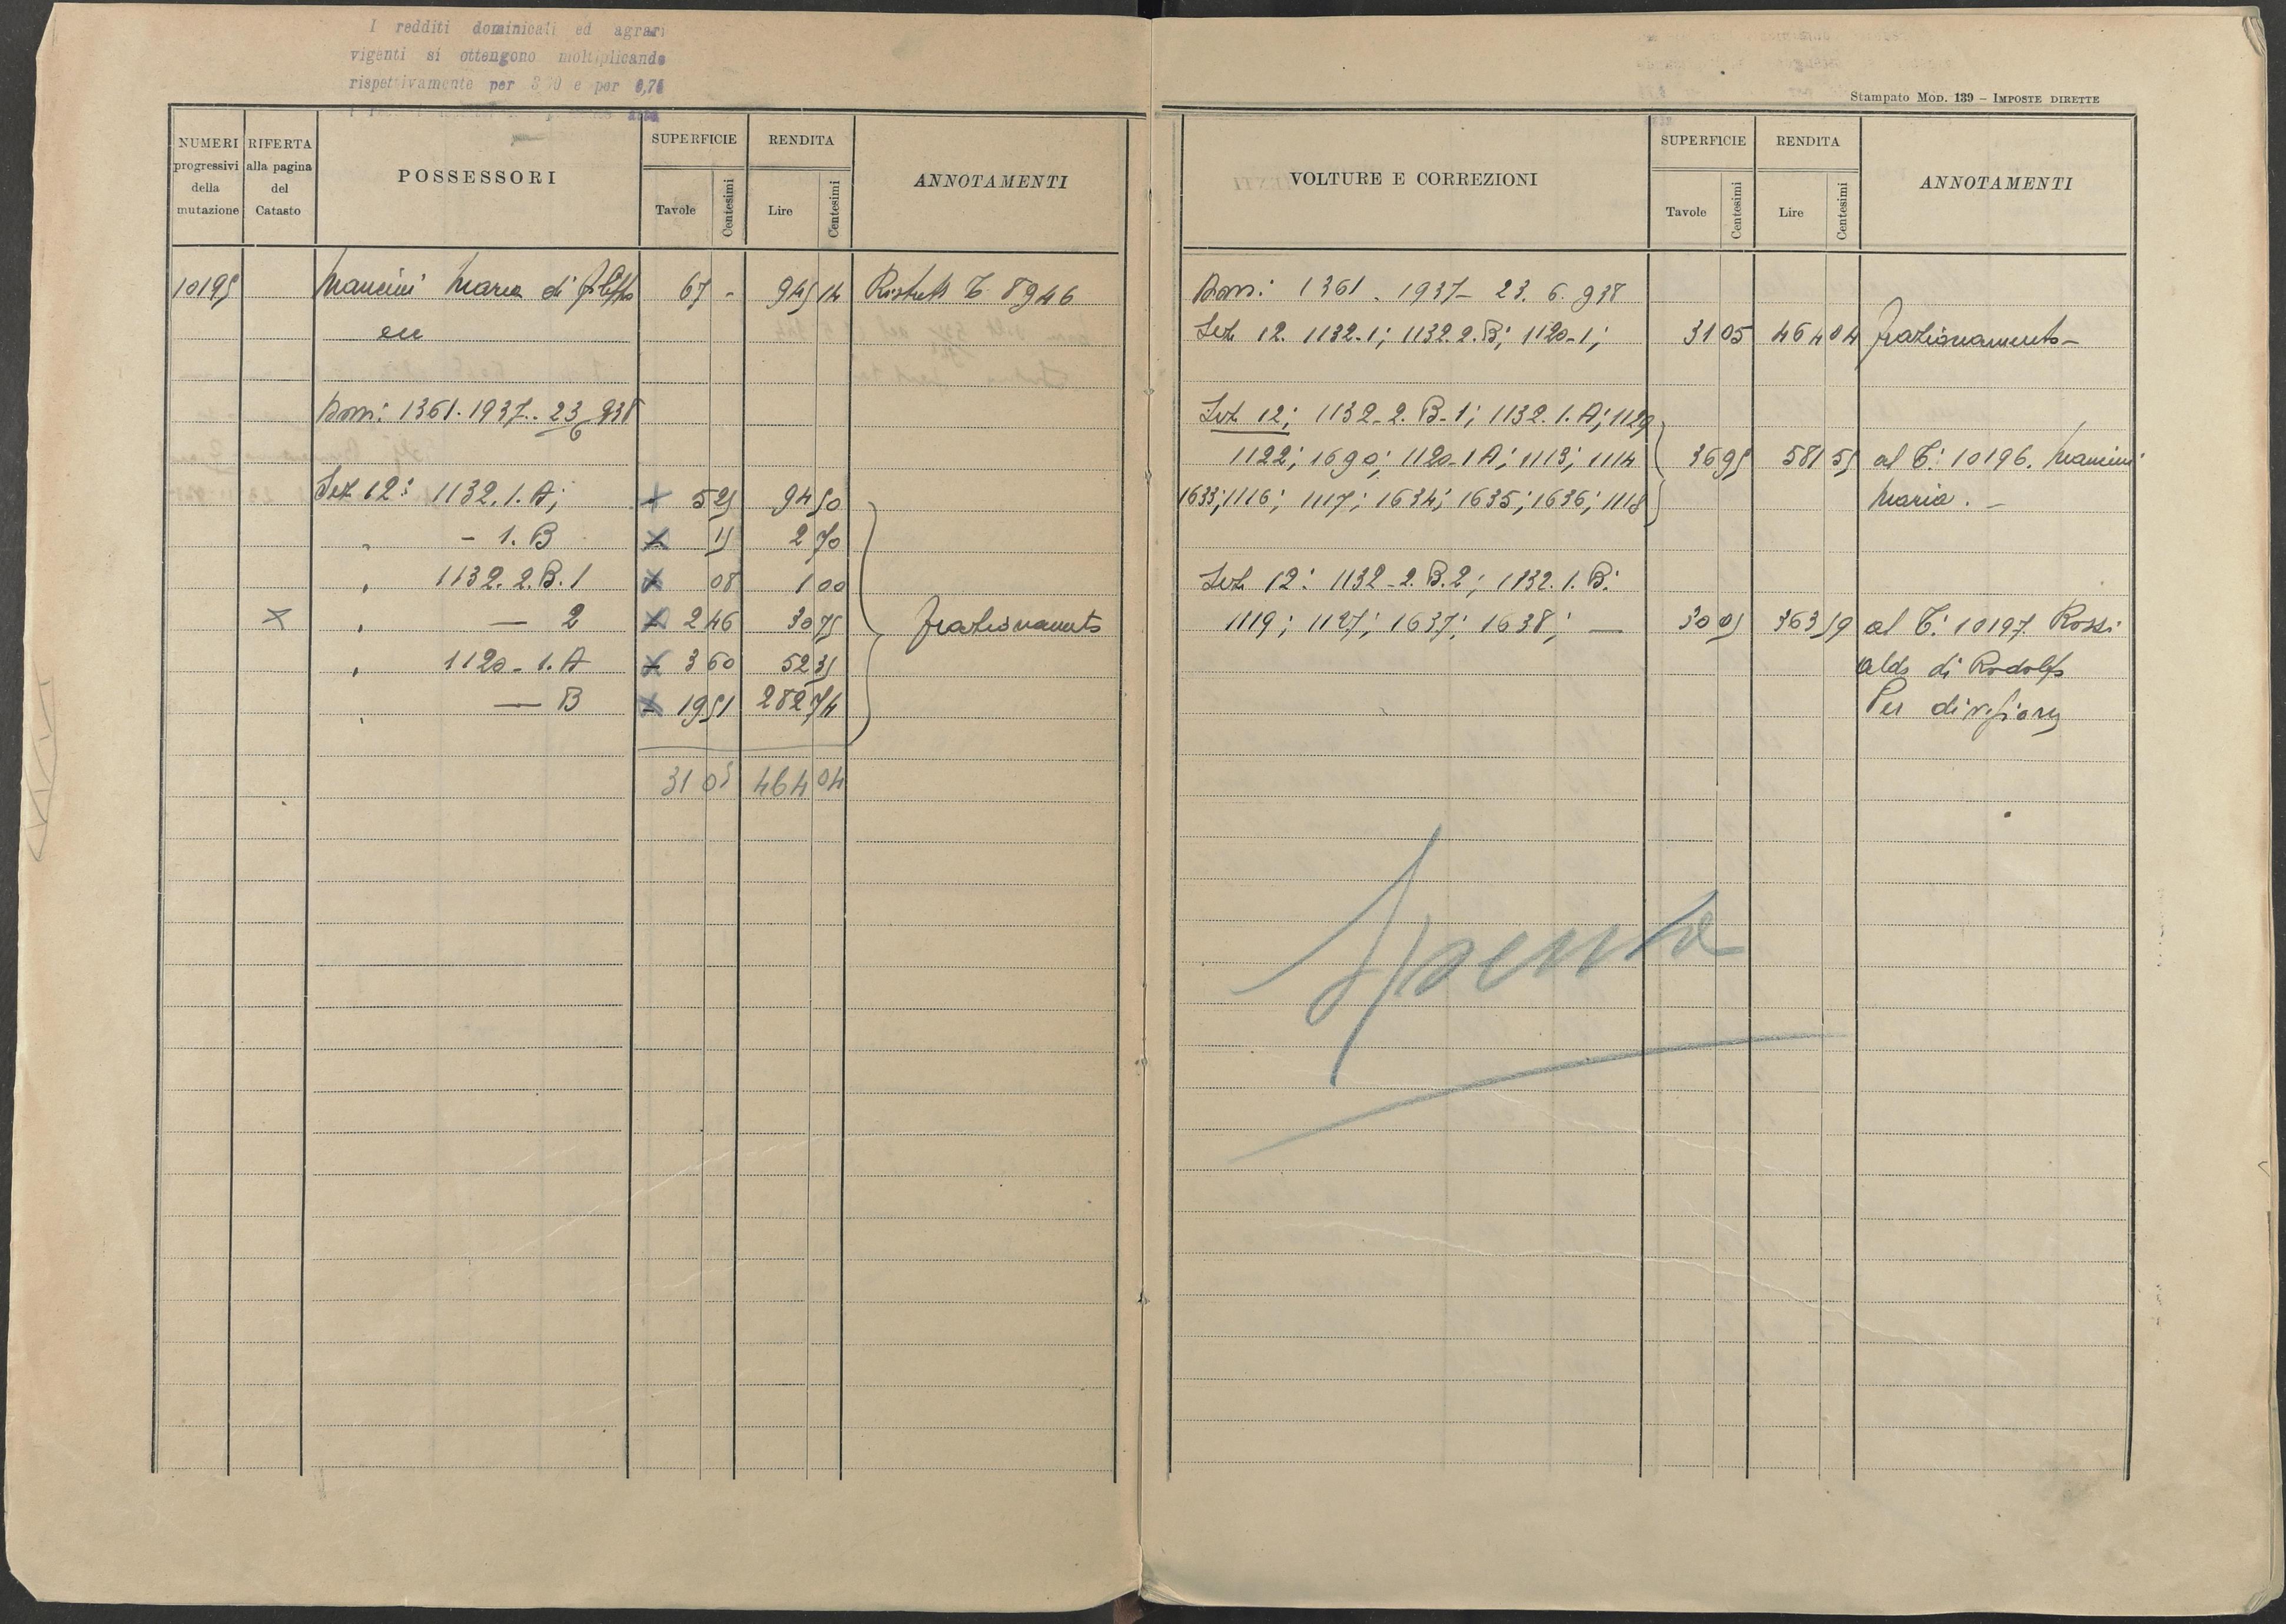 I redditi dominicali ed agrari
vigenti si ottengono moltiplicando
rispettivamente per 3 70 e per 0,75
NUMERI progressivi della mutazione
RIFERTA alla pagina del Catasto
POSSESSORI
SUPERFICIE
Tavole Centesimi
RENDITA
Lire Centesimi
ANNOTAMENTI
10195 Mancini Maria di Filippo 67 - 945 14 T. 8946
Dom: 1361. 1937. 23/6 938
Sez 12: 1132. 1. A; 5 25 94 50
" - 1. B 15 2 70
" 1132. 2. B. 1 08 1 00
X " — 2 2 46 30 75 frazionamento
" 1120 - 1. A 3 60 52 35
" — B 19 51 282 74
31 05 464 04
Stampato Mod. 139 – Imposte dirette
VOLTURE E CORREZIONI
SUPERFICIE
Tavole Centesimi
RENDITA
Lire Centesimi
ANNOTAMENTI
Dom: 1361. 1937 - 23. 6. 938
Sez 12. 1132. 1; 1132. 2. B; 1120 - 1; 31 05 464 04 frazionamento -
Sez 12; 1132 - 2. B - 1; 1132. 1. A; 1129
1122; 1690; 1120 - 1 A; 1113; 1114 36 95 581 55 al T: 10196. Mancini
1633; 1116; 1117; 1634; 1635; 1636; 1118 Maria. -
Sez 12: 1132 - 2. B. 2; 1132. 1. B:
1119; 1127; 1637; 1638; — 30 05 363 59 al T: 10197. Rossi
Aldo di Rodolfo
Per divisione
Spenta